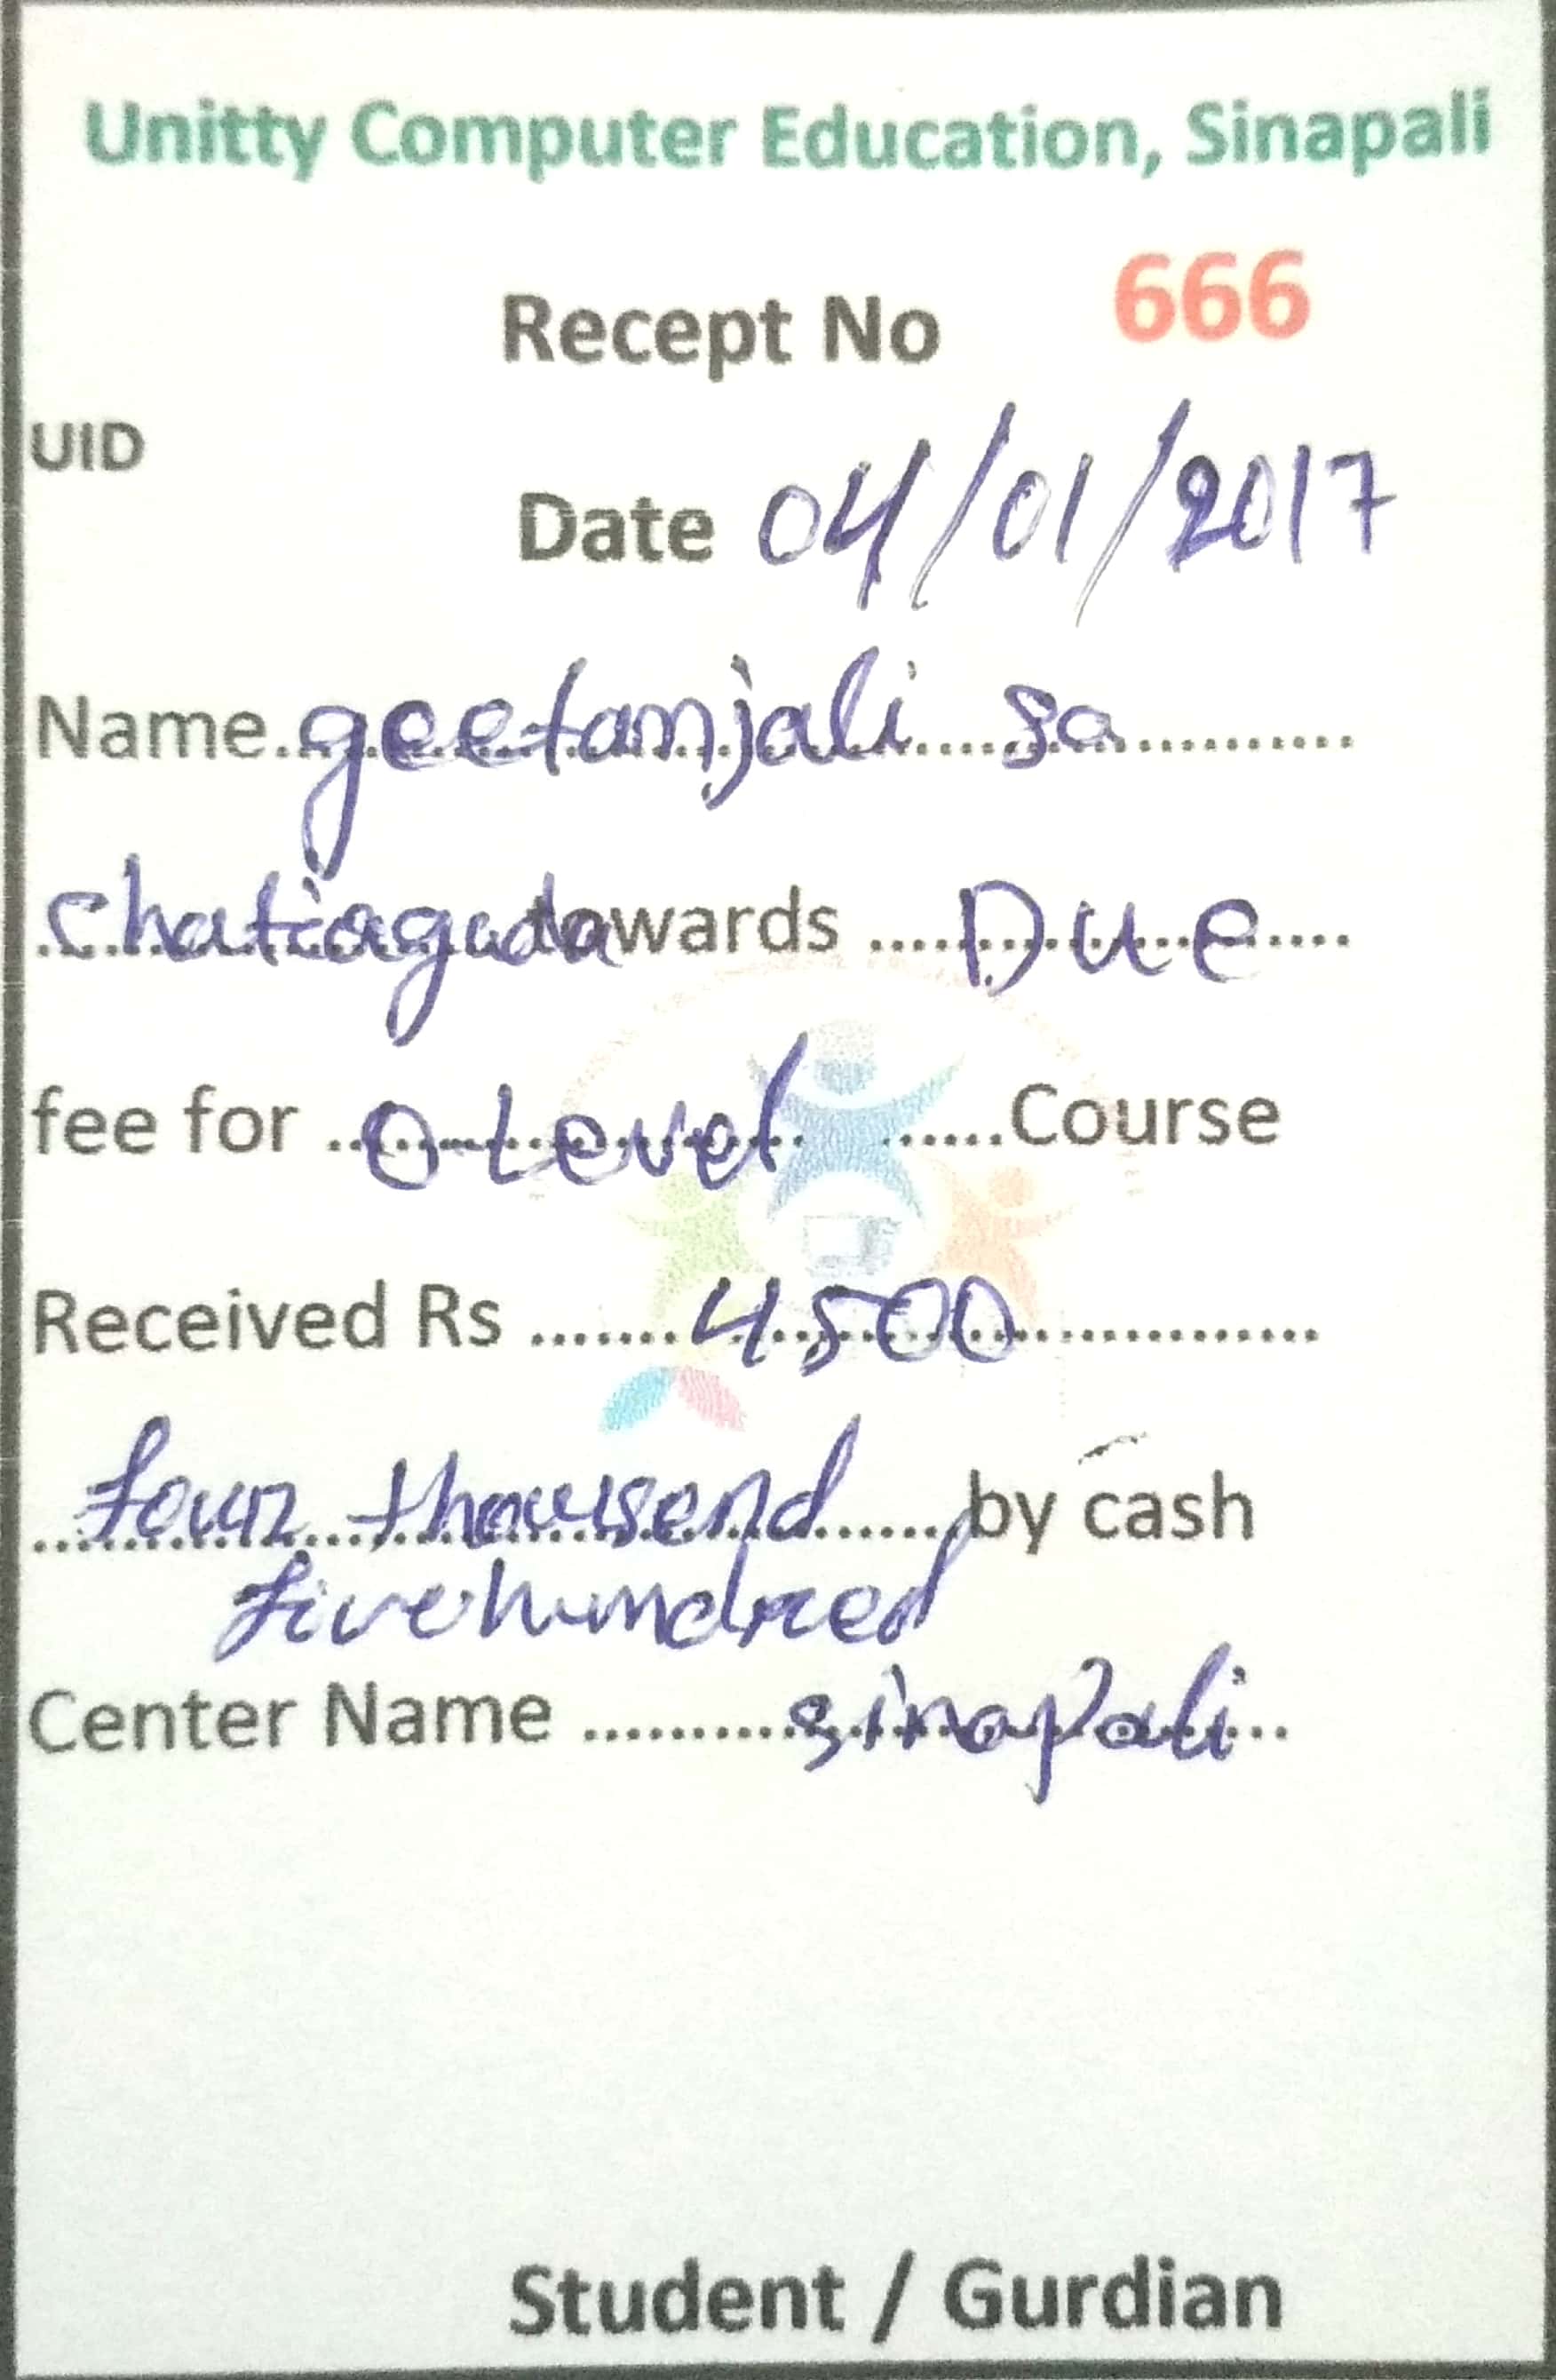 Unitty Computer Education, Sinapali
Recept No 666
UID
Date 04/01/2017
Name geetanjali sa
chatiaguda towards Due
fee for O Level Course
Received Rs 4,500
four thousend by cash
fivehundred
Center Name sinapali
Student / Gurdian